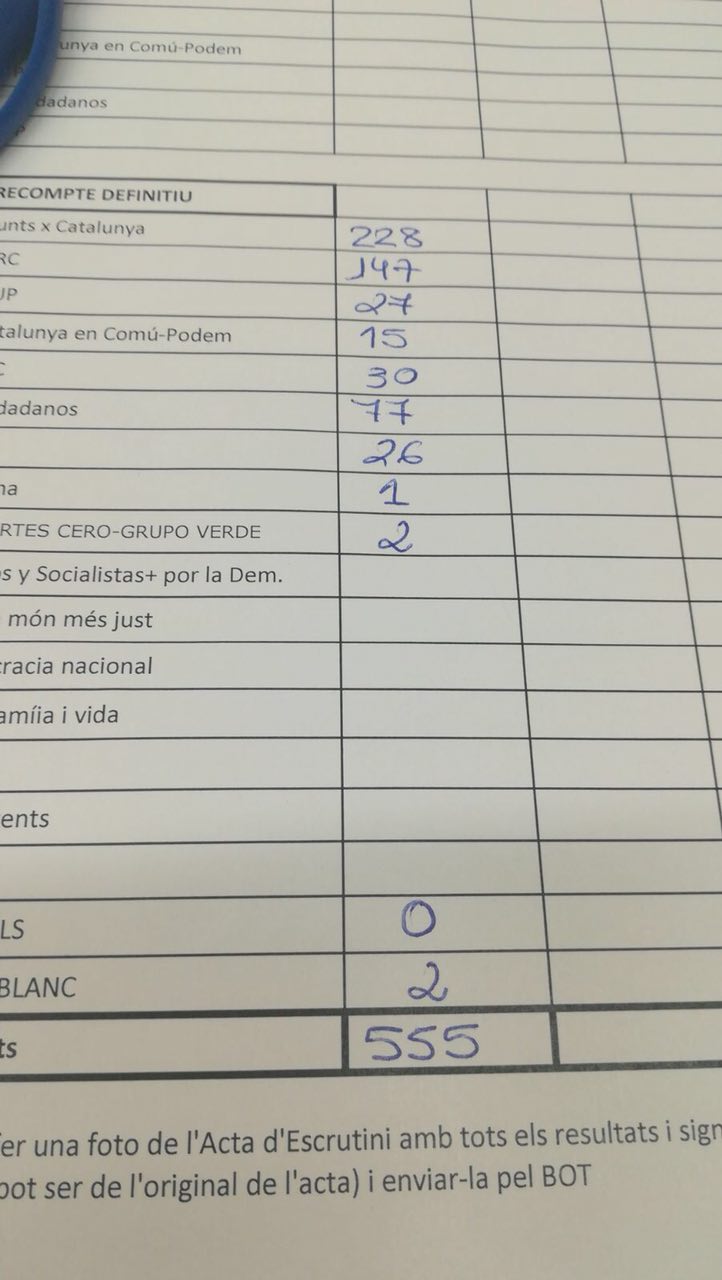 unya en Comú-Podem
dadanos
P
RECOMPTE DEFINITIU
unts x Catalunya 228
RC 147
UP 27
talunya en Comú-Podem 15
C 30
dadanos 77
26
na 1
RTES CERO-GRUPO VERDE 2
os y Socialistas+ por la Dem.
món més just
cracia nacional
amíia i vida
ents
LS 0
BLANC 2
ts 555
fer una foto de l'Acta d'Escrutini amb tots els resultats i sign
pot ser de l'original de l'acta) i enviar-la pel BOT